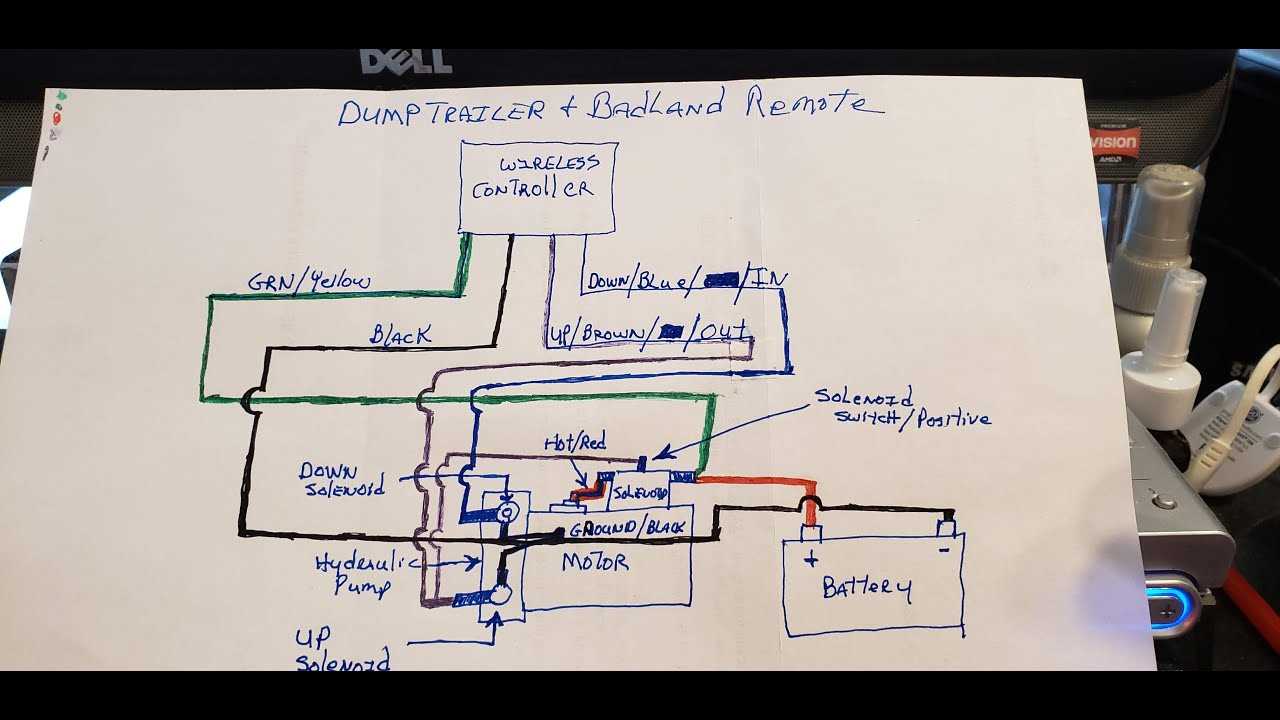 DELL
DUMP TRAILER + BADLAND REMOTE
VISION
AMD
WIRELESS
CONTROllER
GRN/Yellow
DOWN/BLUE/ /IN
BLACK
UP/BROWN/ /OUT
SOLENOID
SWITCH/POSITIVE
Hot/Red
DOWN
SOLENOID
SOLENOID
GROUND/BLACK
Hyderaulic
Pump
MOTOR
+
-
BATTERY
UP
Solenoid